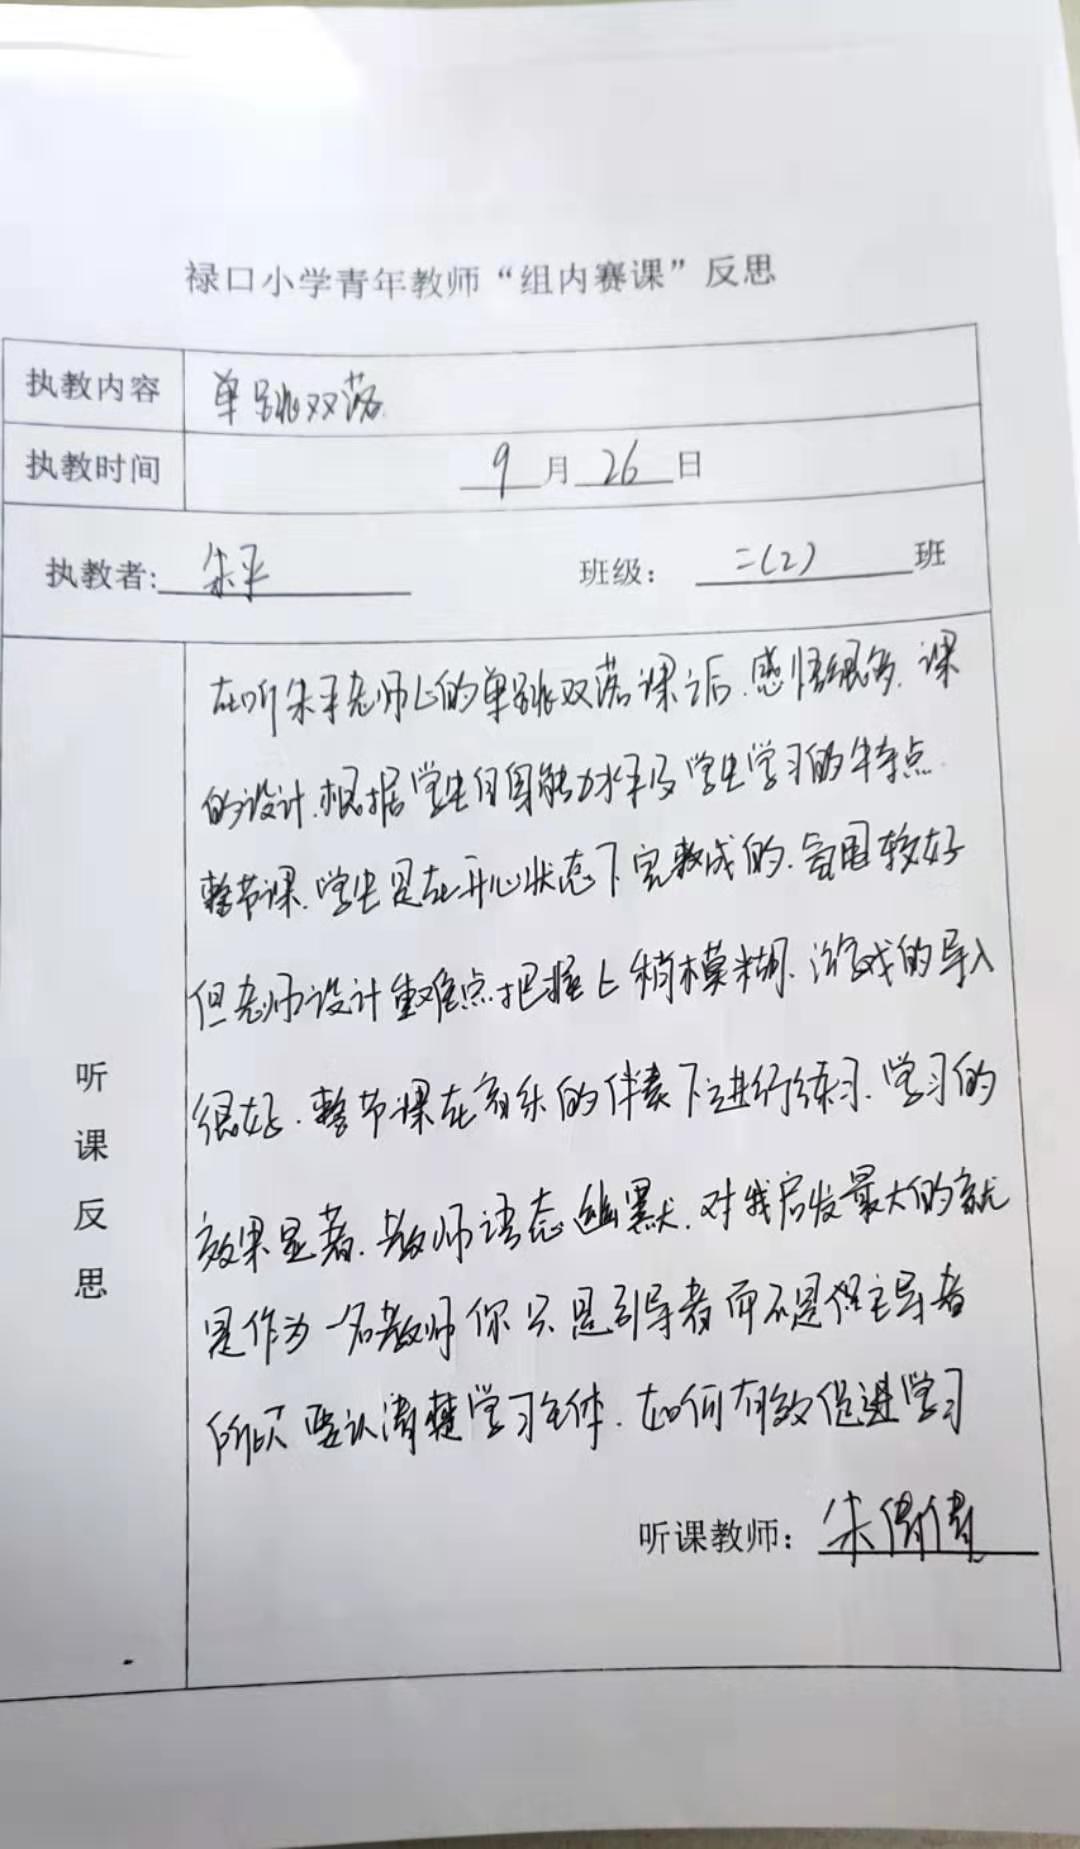 禄口小学青年教师“组内赛课”反思
执教内容 单跳双落
执教时间 9月26日
执教者: 朱平 班级: 二(2) 班
听课反思
在听朱平老师上的单跳双落课之后.感悟很多.课
的设计.根据学生自身能力水平及学生学习的特点.
整节课.学生是在开心状态下完成的.氛围较好
但老师设计重难点把握上稍模糊.游戏的导入
很好.整节课在音乐的伴奏下进行练习.学习的
效果显著.教师语态幽默.对我启发最大的就
是作为一名教师你只是引导者而不是主导者
所以要认清楚学习主体.如何有效促进学习
听课教师: 朱倩倩